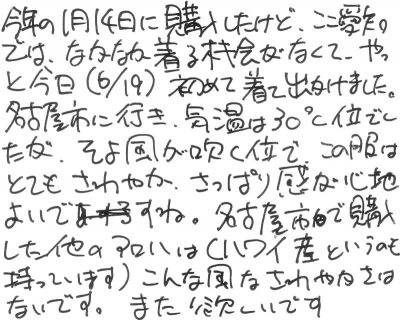 今年の1月14日に購入したけど、ここ愛知
では、なかなか着る機会がなくて、やっ
と今日(6/19)初めて着て出かけました。
名古屋市に行き、気温は30℃位でし
たが、そよ風が吹く位で、この服は
とてもさわやか、さっぱり感が心地
よいですね。名古屋市内で購入
した他のアロハは(ハワイ産というのも
持っています)こんな風なさわやかさは
ないです。また欲しいです